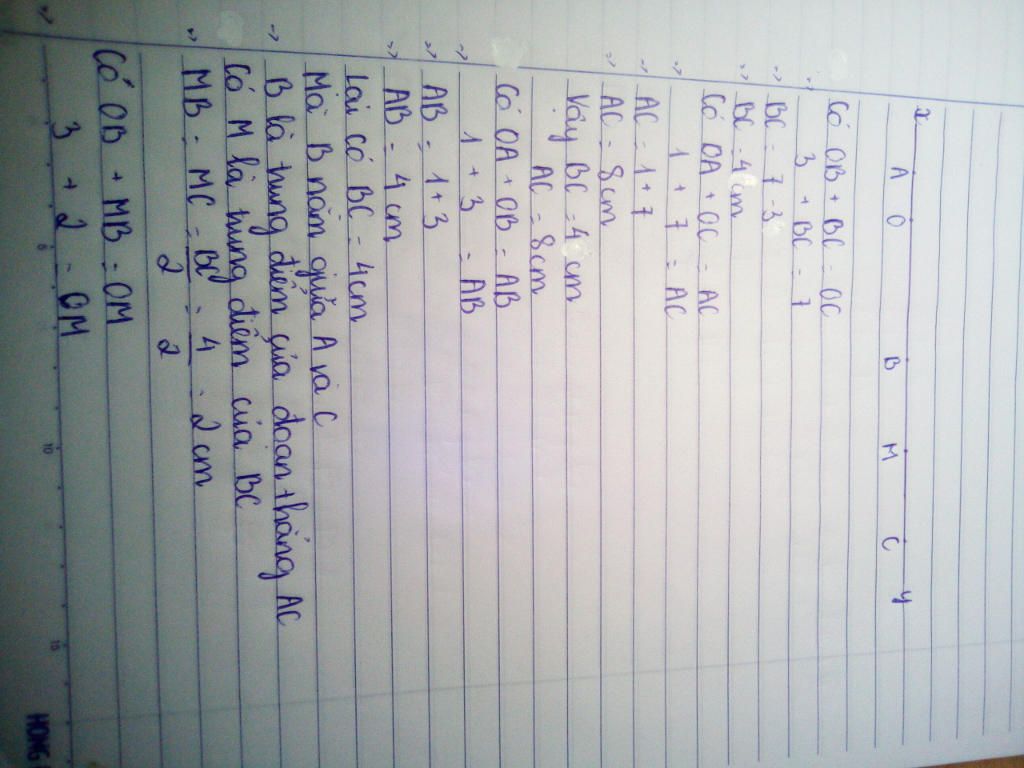 x A O B M C y
Có OB + BC = OC
3 + BC = 7
BC = 7 - 3
BC = 4cm
Có OA + OC = AC
1 + 7 = AC
AC = 1 + 7
AC = 8cm
Vậy BC = 4cm
AC = 8cm
Có OA + OB = AB
1 + 3 = AB
AB = 1 + 3
AB = 4cm
Lại có BC = 4cm
Mà B nằm giữa A và C
B là trung điểm của đoạn thẳng AC
Có M là trung điểm của BC
MB = MC = BC/2 = 4/2 = 2cm
Có OB + MB = OM
3 + 2 = OM
5 10 15
HONG